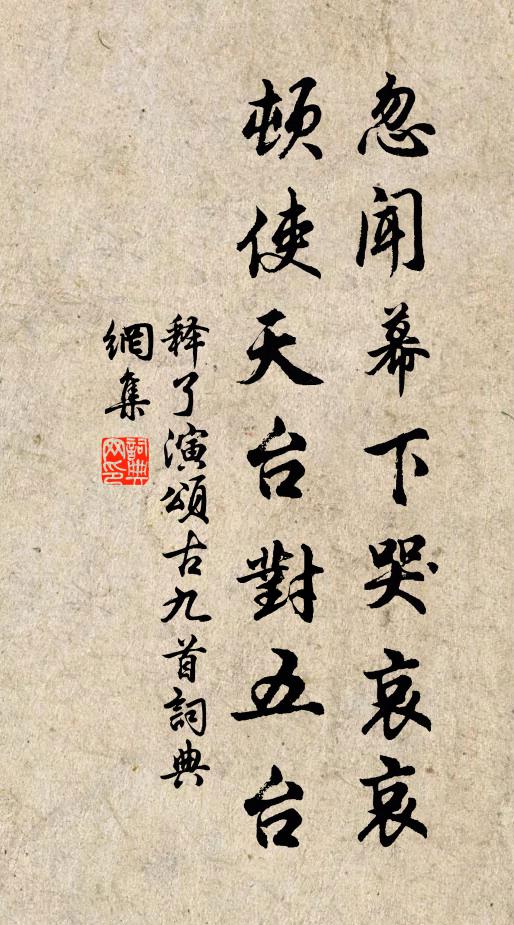 忽聞幕下哭哀哀
頓使天台對五台
释了演頌古九首詞典
網集
詞典网印